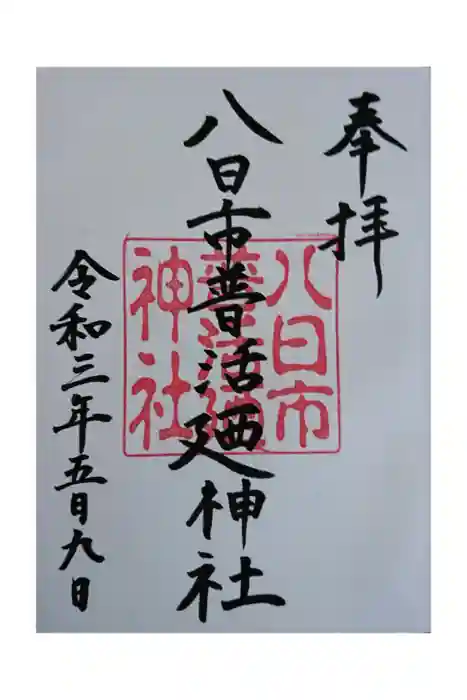 奉拝
八日市普活廼神社
令和三年五月九日
八日市
普活廼
神社